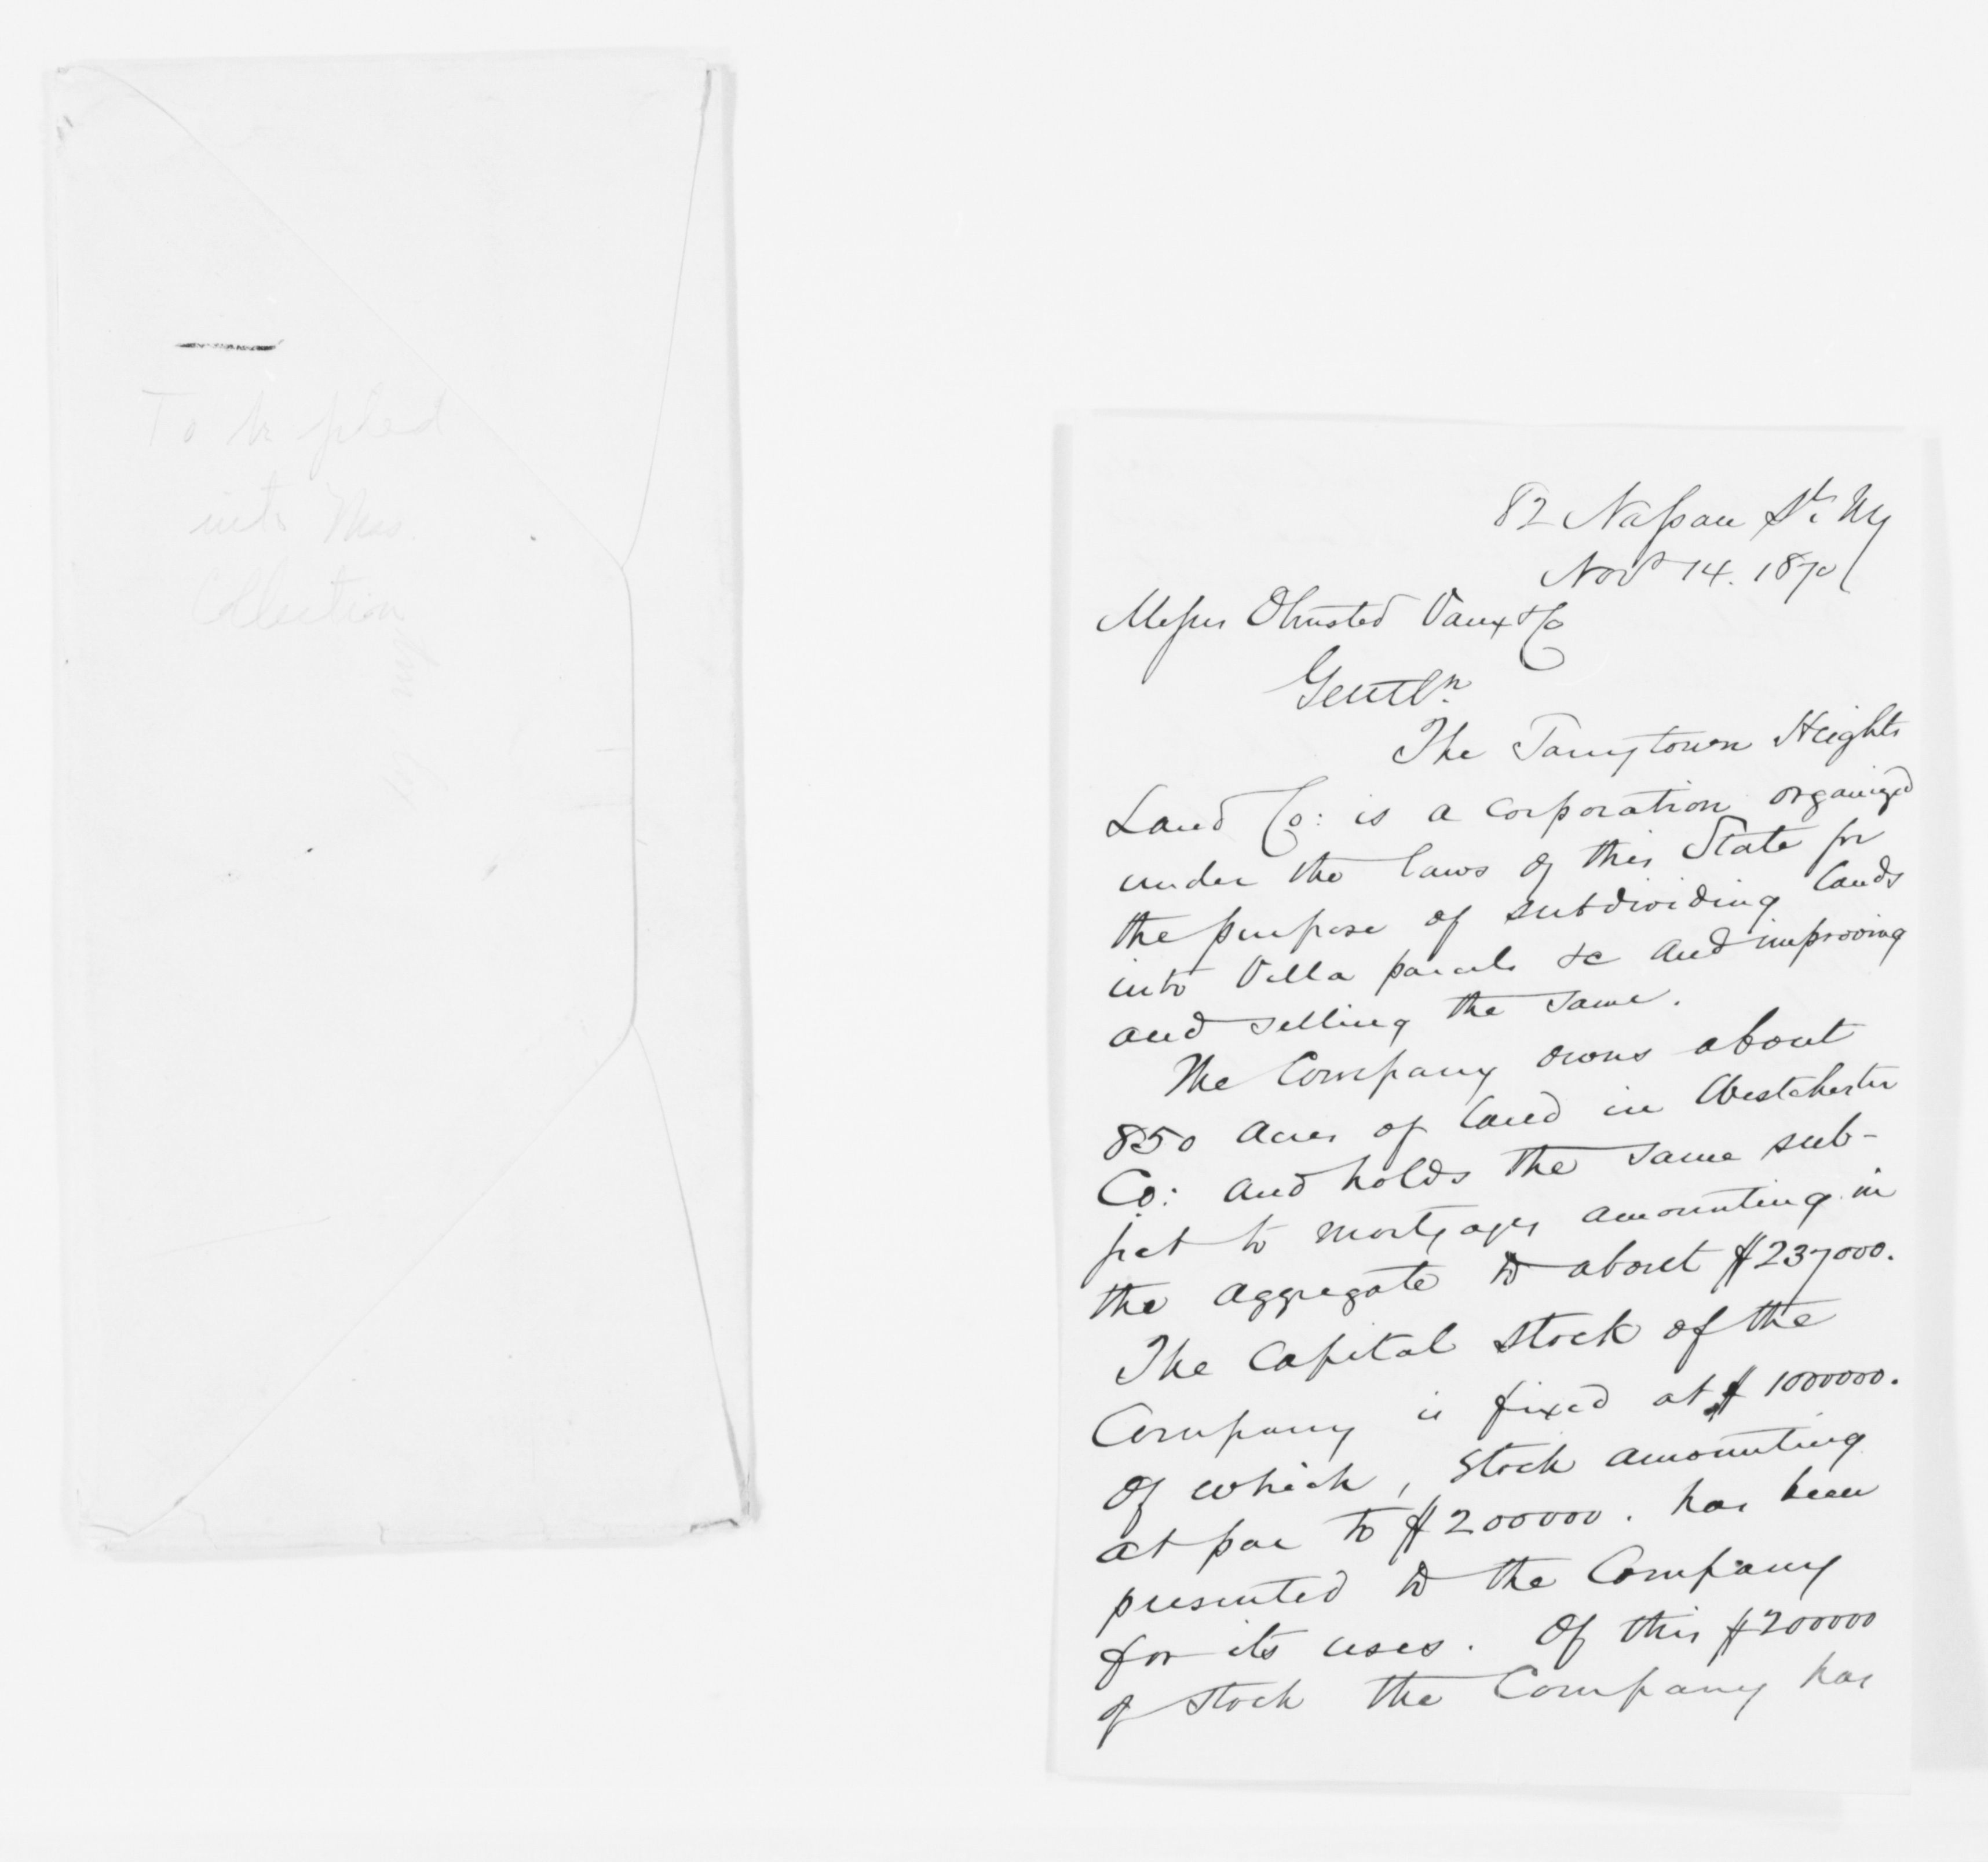 To be filed
into Mss.
Collection
82 Nassau St. NY
Novr 14. 1870
Messrs Olmsted Vaux & Co
Gentln
The Tarrytown Heights
Land Co: is a corporation organized
under the laws of this State for
the purpose of subdividing lands
into Villa parcels &c and improving
and selling the same.
The Company owns about
850 Acres of land in Westchester
Co: and holds the same sub-
ject to mortgages amounting in
the aggregate to about $237000.
The Capital Stock of the
Company is fixed at $1000000.
Of which, Stock amounting
at par to $200000. has been
presented to the Company
for its uses. Of this $200000
of Stock the Company has